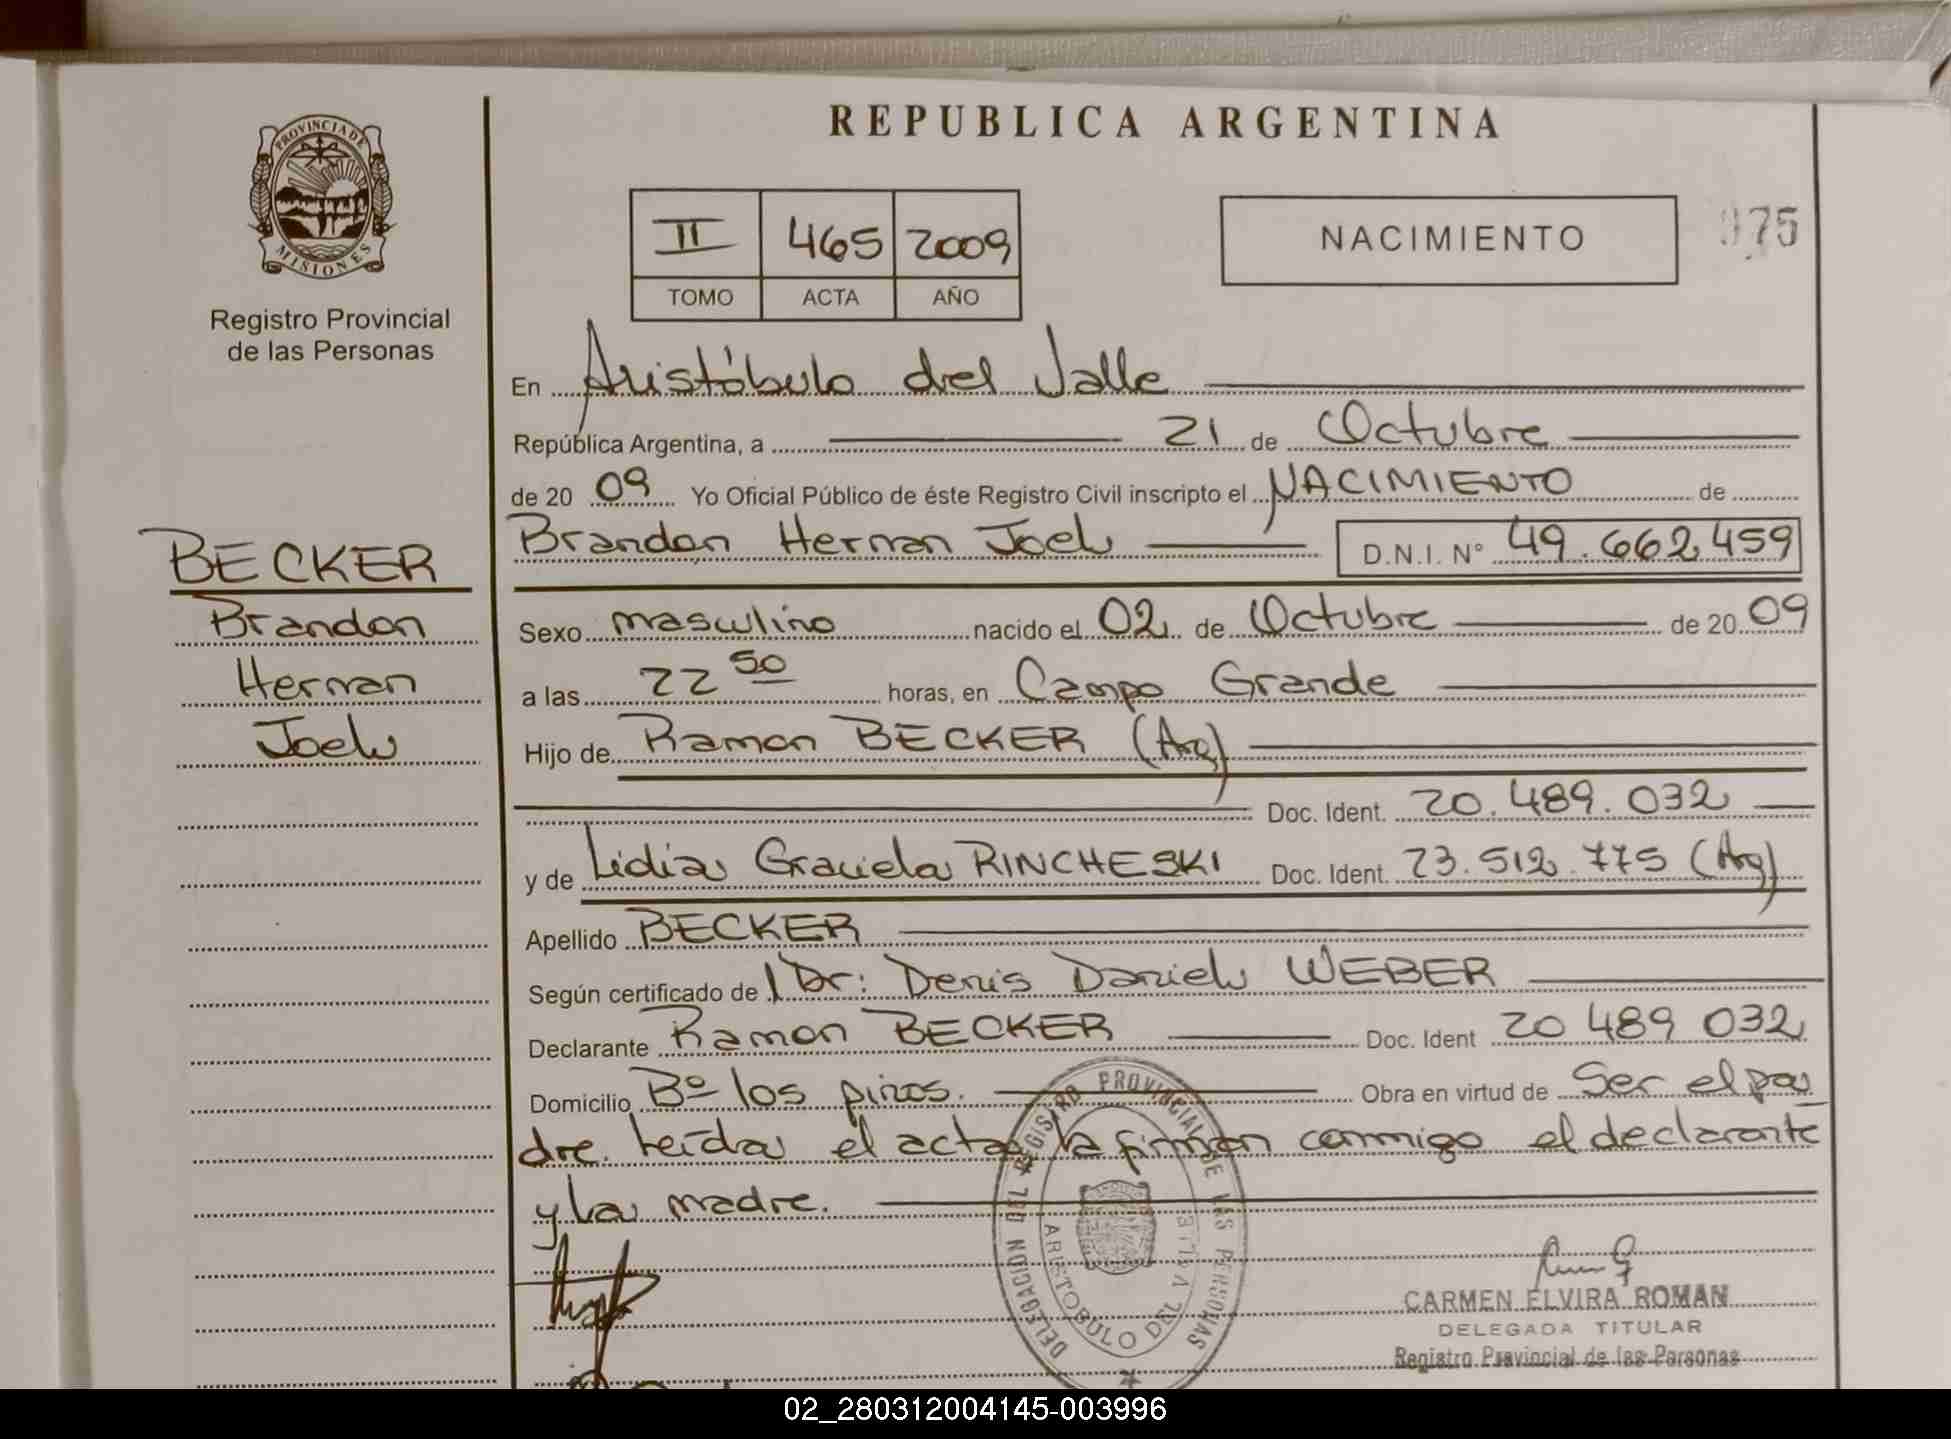 PROVINCIA DE MISIONES
Registro Provincial
de las Personas
REPUBLICA ARGENTINA
II 465 2009
TOMO ACTA AÑO
NACIMIENTO
975
En Aristóbulo del Valle
República Argentina, a 21 de Octubre
de 20 09 Yo Oficial Público de éste Registro Civil inscripto el NACIMIENTO de
Brandon Hernan Joel D.N.I. N° 49.662.459
BECKER
Brandon
Hernan
Joel
Sexo masculino nacido el 02 de Octubre de 20 09
a las 22 50 horas, en Campo Grande
Hijo de Ramon BECKER (Arg)
Doc. Ident. 20.489.032
y de Lidia Graciela RINCHESKI Doc. Ident. 23.512.775 (Arg)
Apellido BECKER
Según certificado de Dr: Denis Daniel WEBER
Declarante Ramon BECKER Doc. Ident 20 489 032
Domicilio Bº los pinos. Obra en virtud de Ser el pa
dre. Leída el acta la firman conmigo el declarante
y la madre.
DELEGACION DEL REGISTRO PROVINCIAL DE LAS PERSONAS
ARISTOBULO DEL VALLE
CARMEN ELVIRA ROMAN
DELEGADA TITULAR
Registro Provincial de las Personas
02_280312004145-003996